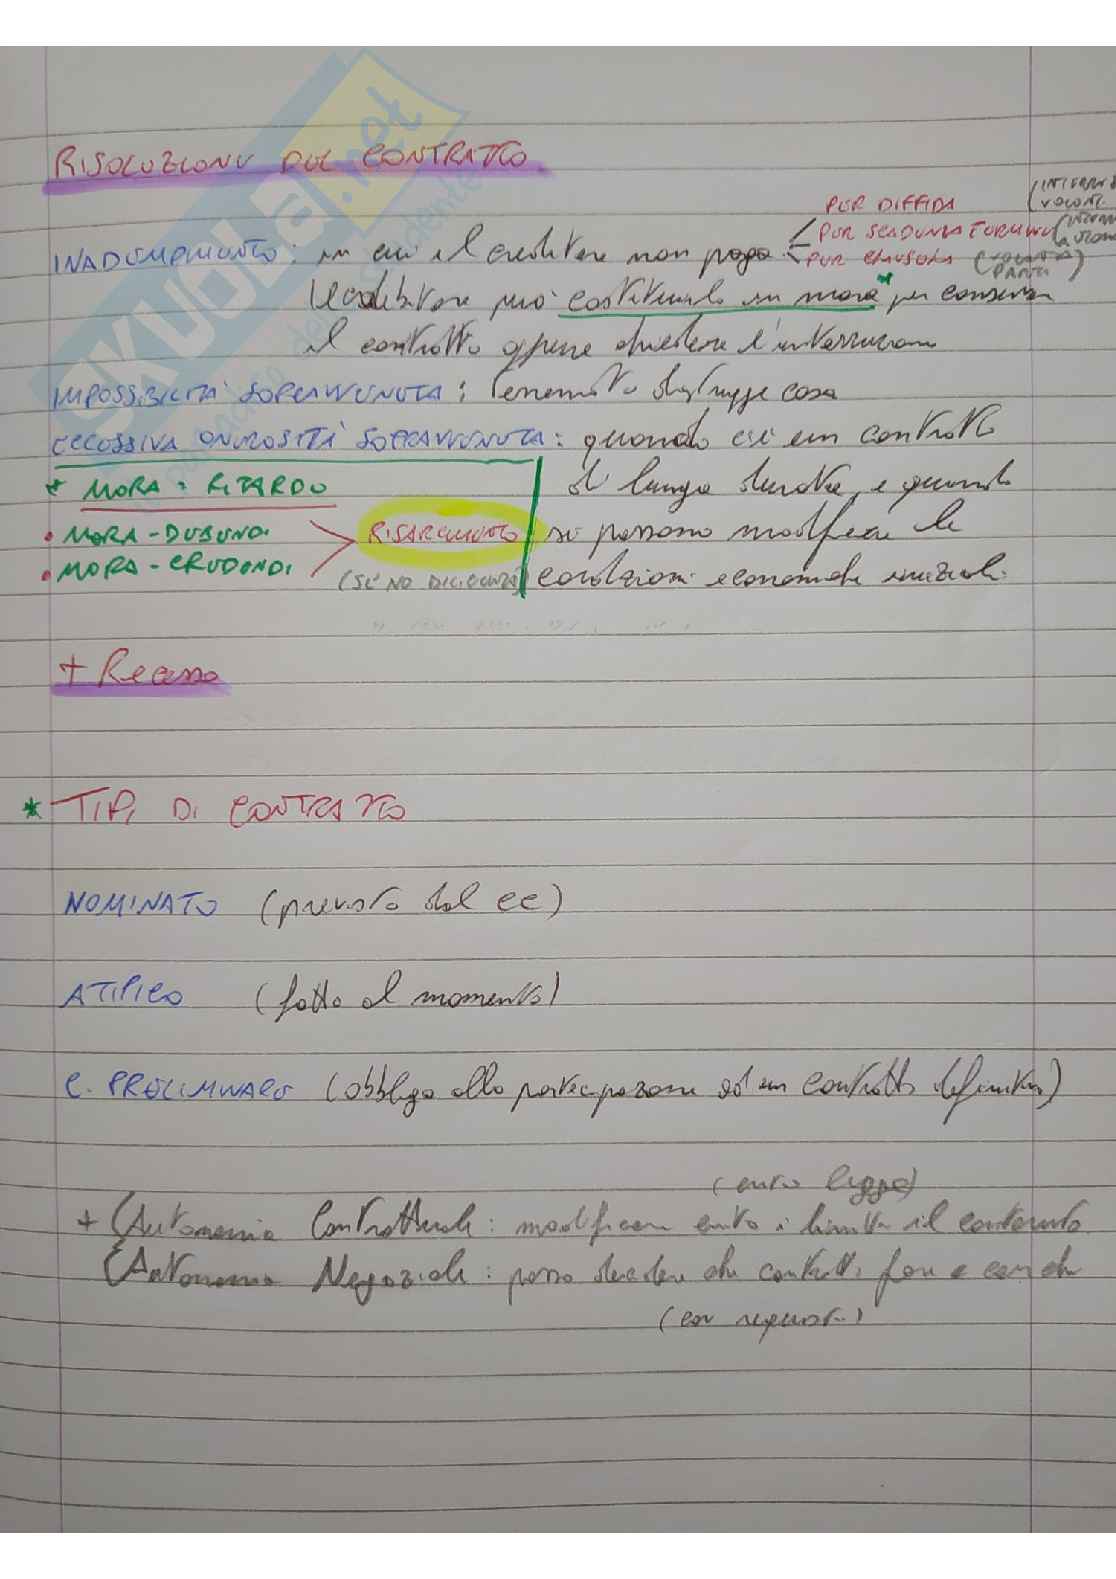 RISOLUZIONE DEL CONTRATTO
PER DIFFIDA
INADEMPIMENTO: in cui il creditore non paga PER SCADENZA TERMINE
PER CLAUSOLA (VOLONTÀ PARTI)
può costituirlo in mora* per conservare
il contratto oppure chiedere l'interruzione
IMPOSSIBILITÀ SOPRAVVENUTA: terremoto distrugge casa
ECCESSIVA ONEROSITÀ SOPRAVVENUTA: quando c'è un contratto
* MORA = RITARDO
di lunga durata, e quando
• MORA-DEBENDI
RISARCIMENTO
si possono modificare le
• MORA-CREDENDI
(SE NO DILIGENZA)
condizioni economiche iniziali.
+ Recesso
* TIPI DI CONTRATTO
NOMINATO (previsto dal cc)
ATIPICO (fatto al momento)
C. PRELIMINARE (obbligo alla partecipazione ad un contratto definitivo)
(entro legge)
+ (Autonomia Contrattuale: modificare entro i limiti il contenuto
(Autonomia Negoziale: posso decidere che contratti fare e con chi
(con requisiti)
SKUOLA.net